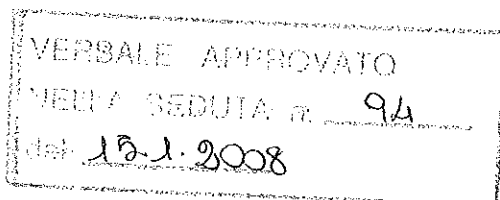 VERBALE APPROVATO
NELLA SEDUTA n. 94
del 15.1.2008